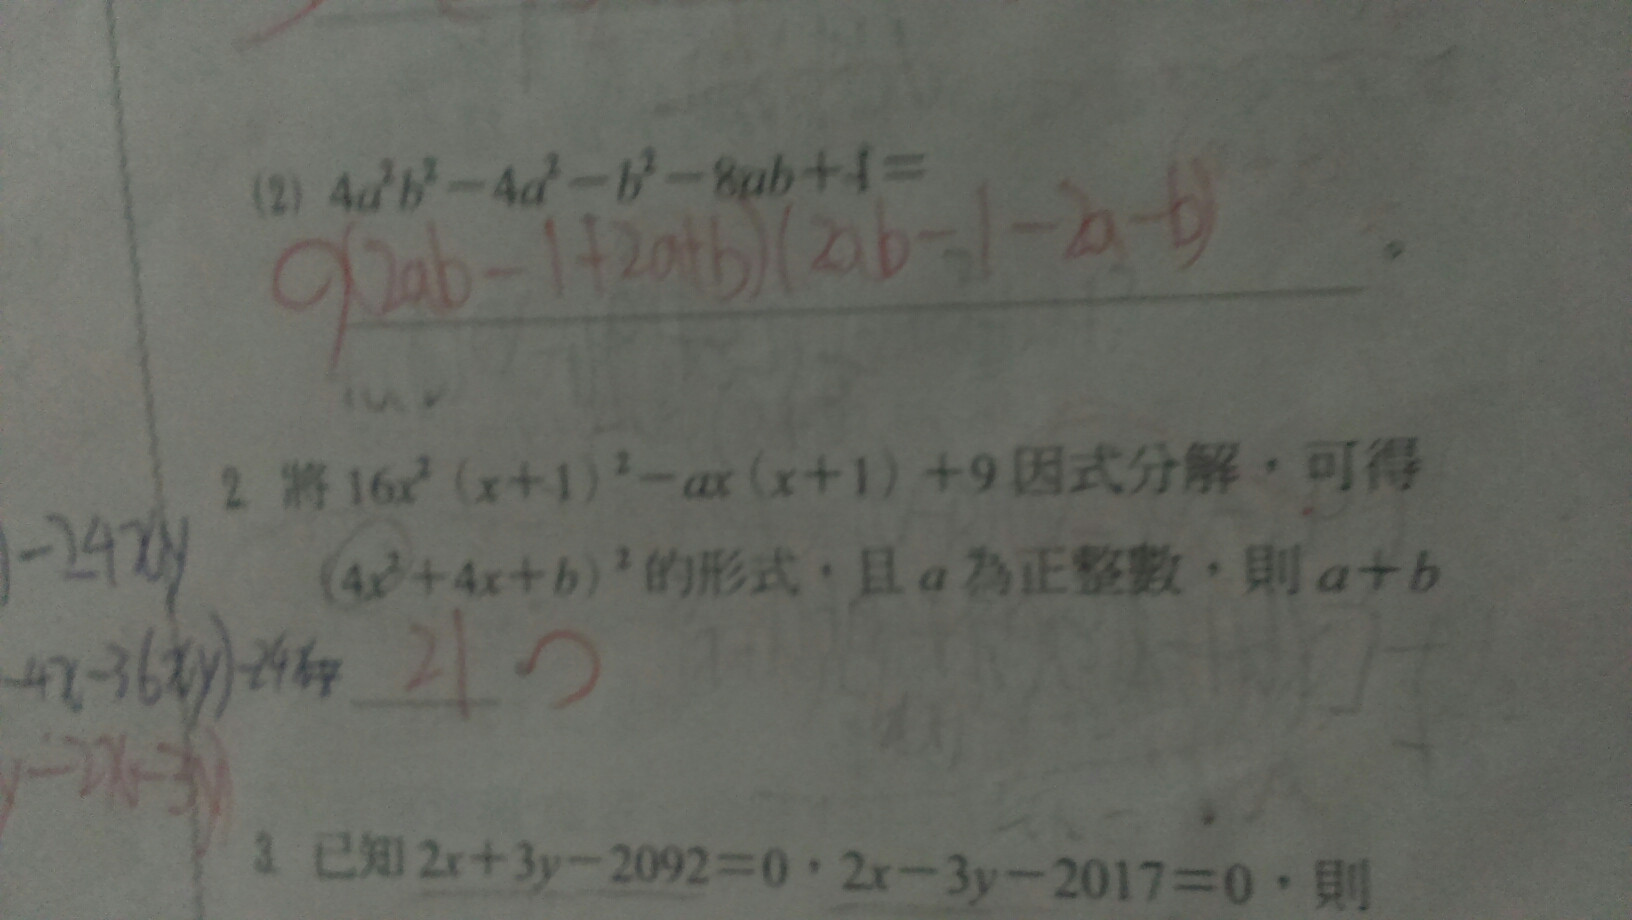 (2) 4a²b²－4a²－b²－8ab＋1＝
(2ab－1＋2a＋b)(2ab－1－2a－b)
2. 將 16x²（x＋1）²－ax（x＋1）＋9 因式分解，可得
(4x²＋4x＋b)²的形式，且 a 為正整數，則 a＋b
－24xy
－4x－36xy)－24xy
21
y－2x－3y)
3. 已知 2x＋3y－2092＝0，2x－3y－2017＝0，則